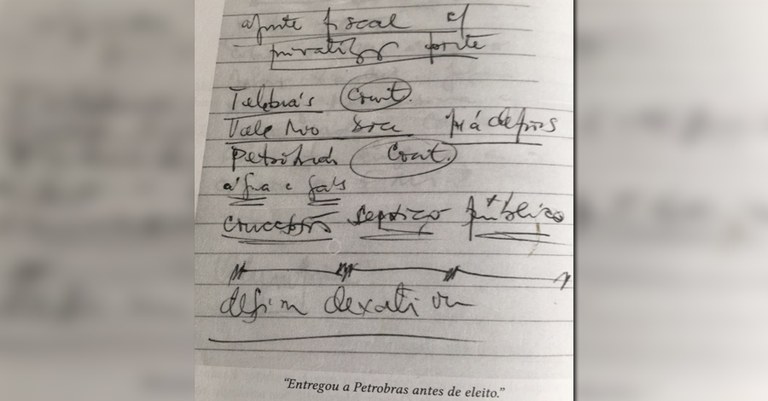 ajuste fiscal c/
privatizar forte
Telebrás Const.
Vale Rio Doce já depois
Petrobrás Const.
água e gás
concessão serviço público
"Entregou a Petrobras antes de eleito."